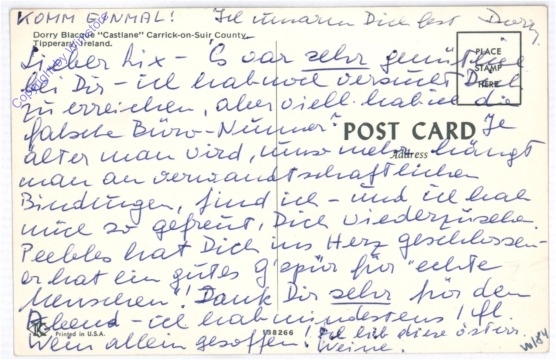 KOMM EINMAL! Ich umarm Dich fest Dorry.
Dorry Blacque "Castlane" Carrick-on-Suir County
Tipperary Ireland.
Lieber Lix - Es war sehr gemütlich
bei Dir - ich hab noch versucht Dich
zu erreichen, aber viell. hab ich die
falsche Büro-Nummer? Je
älter man wird, umso mehr hängt
man an verwandtschaftlichen
Bindungen, find ich - und ich hab
mich so gefreut, Dich wiederzusehen.
Peebles hat Dich ins Herz geschlossen -
er hat ein gutes G'spür für "echte
Menschen"! Dank Dir sehr für den
Abend - ich hab mindestens 1 fl.
Wein allein gesoffen! Ich lieb diese österr.
Weine.
PLACE
STAMP
HERE
POST CARD
Address
Printed in U.S.A.
138266
VII/84